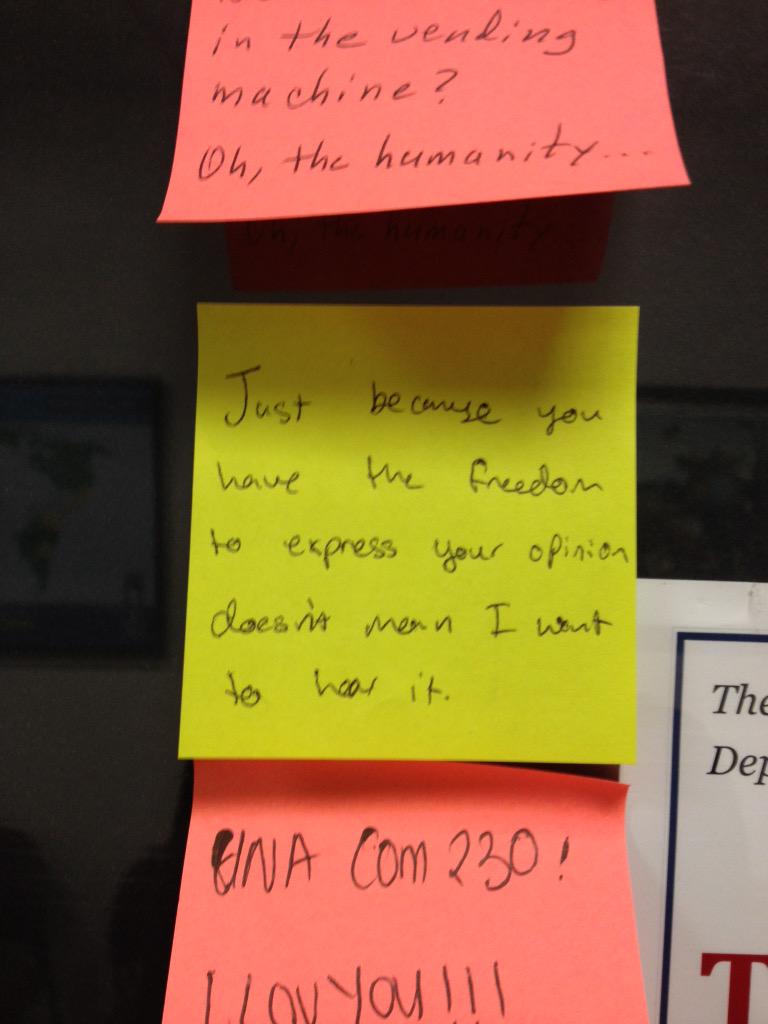 in the vending
machine?
Oh, the humanity...
Just because you
have the freedom
to express your opinion
doesn't mean I want
to hear it.
UNA COM 230!
I LOV YOU!!!
The
Dep
T